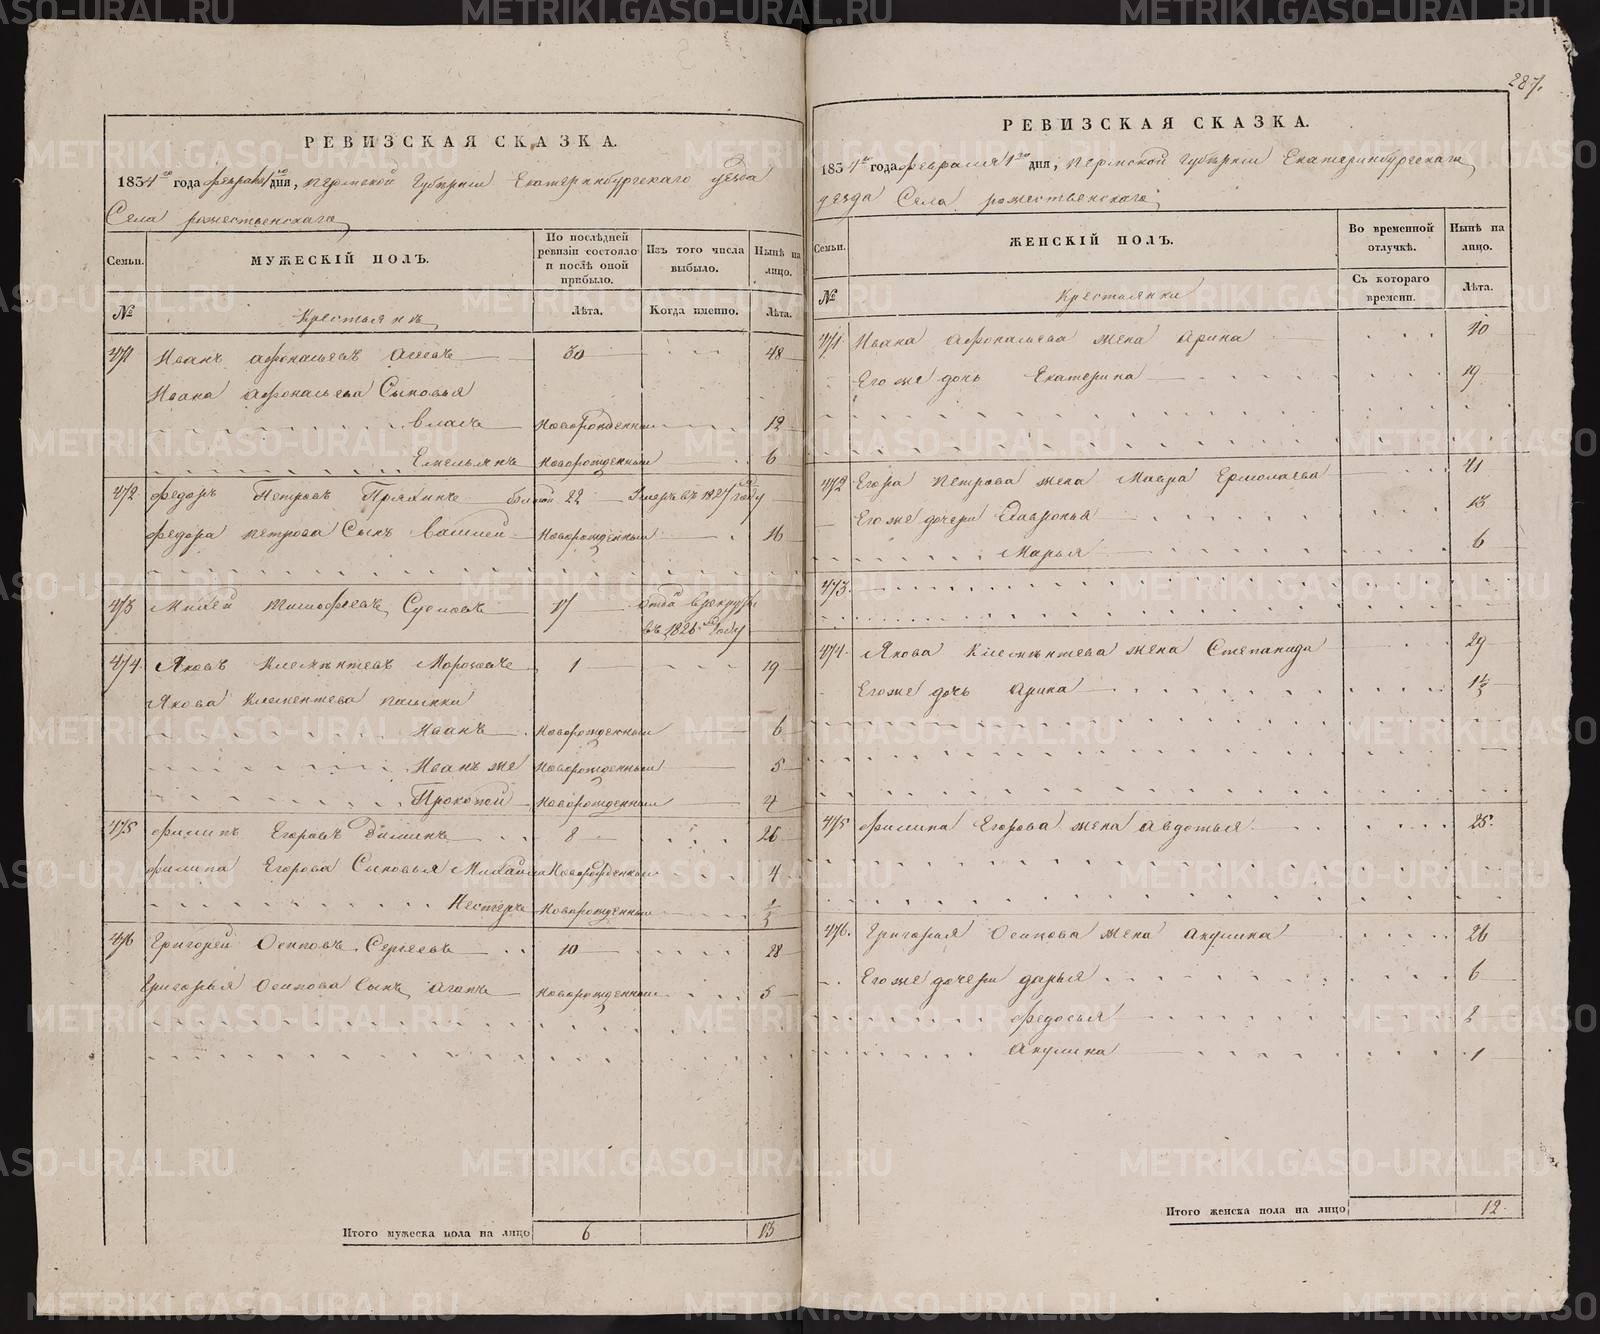 287.
РЕВИЗСКАЯ СКАЗКА.
1834го года февраля 1го дня, Пермской Губернии Екатеринбургскаго уезда
Села рожественскаго
Семьи.
МУЖЕСКІЙ ПОЛЪ.
По послѣдней ревизіи состояло и послѣ оной прибыло.
Изъ того числа выбыло.
Нынѣ на лицо.
№
Крестьянъ
Лѣта.
Когда именно.
Лѣта.
471 Иванъ афонасьевъ 30 48
Ивана афонасьева Сыновья
власъ Новорожденный 12
Емельянъ Новорожденный 6
472 федоръ Петровъ Пряхинъ 22 Умеръ въ 1827 году
федора петрова Сынъ василей Новорожденный 16
473 Михей тимофеевъ 17 отдан в рекруты
въ 1826 году
474. Яковъ Клементевъ Морозовъ 1 19
Якова Клементева
Иванъ Новорожденный 6
Иванъ же Новорожденный 5
Прокопей Новорожденный 4
475 филипъ Егоровъ 8 26
филипа Егорова Сыновья Михайла Новорожденный 4
Нестеръ Новорожденный
476 Григорей Осиповъ Сергеевъ 10 28
Григорья Осипова Сынъ агапъ Новорожденный 5
Итого мужеска пола на лицо 6 13
РЕВИЗСКАЯ СКАЗКА.
1834го года февраля 1го дня, Пермской губернии Екатеринбургскаго
уезда Села рожественскаго
Семьи.
ЖЕНСКІЙ ПОЛЪ.
Во временной отлучкѣ.
Нынѣ на лицо.
№
Крестьянки
Съ котораго времени.
Лѣта.
471 Ивана афонасьева жена арина 40
Его же дочь Екатерина 19
472 Егора петрова жена Мавра Ермолаева 41
Его же дочери 13
Марья 6
473.
474. Якова Клементева жена Степанида 29
Его же дочь арина
475 филипа Егорова жена авдотья 25.
476. Григорья Осипова жена акулина 26
Его же дочери дарья 6
федосья 2
акулина 1
Итого женска пола на лицо 12.
METRIKI.GASO-URAL.RU